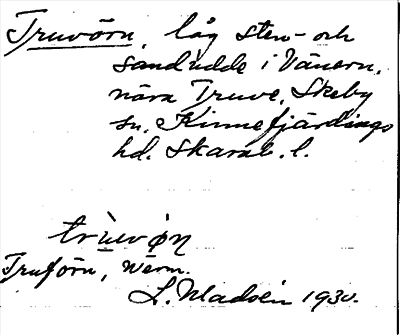 Truvörn, låg sten- och
sandudde i Vänern,
nära Truve, Skeby
sn, Kinnefjärdings
hd. Skarab. l.
Truförn, Werm.
1930.